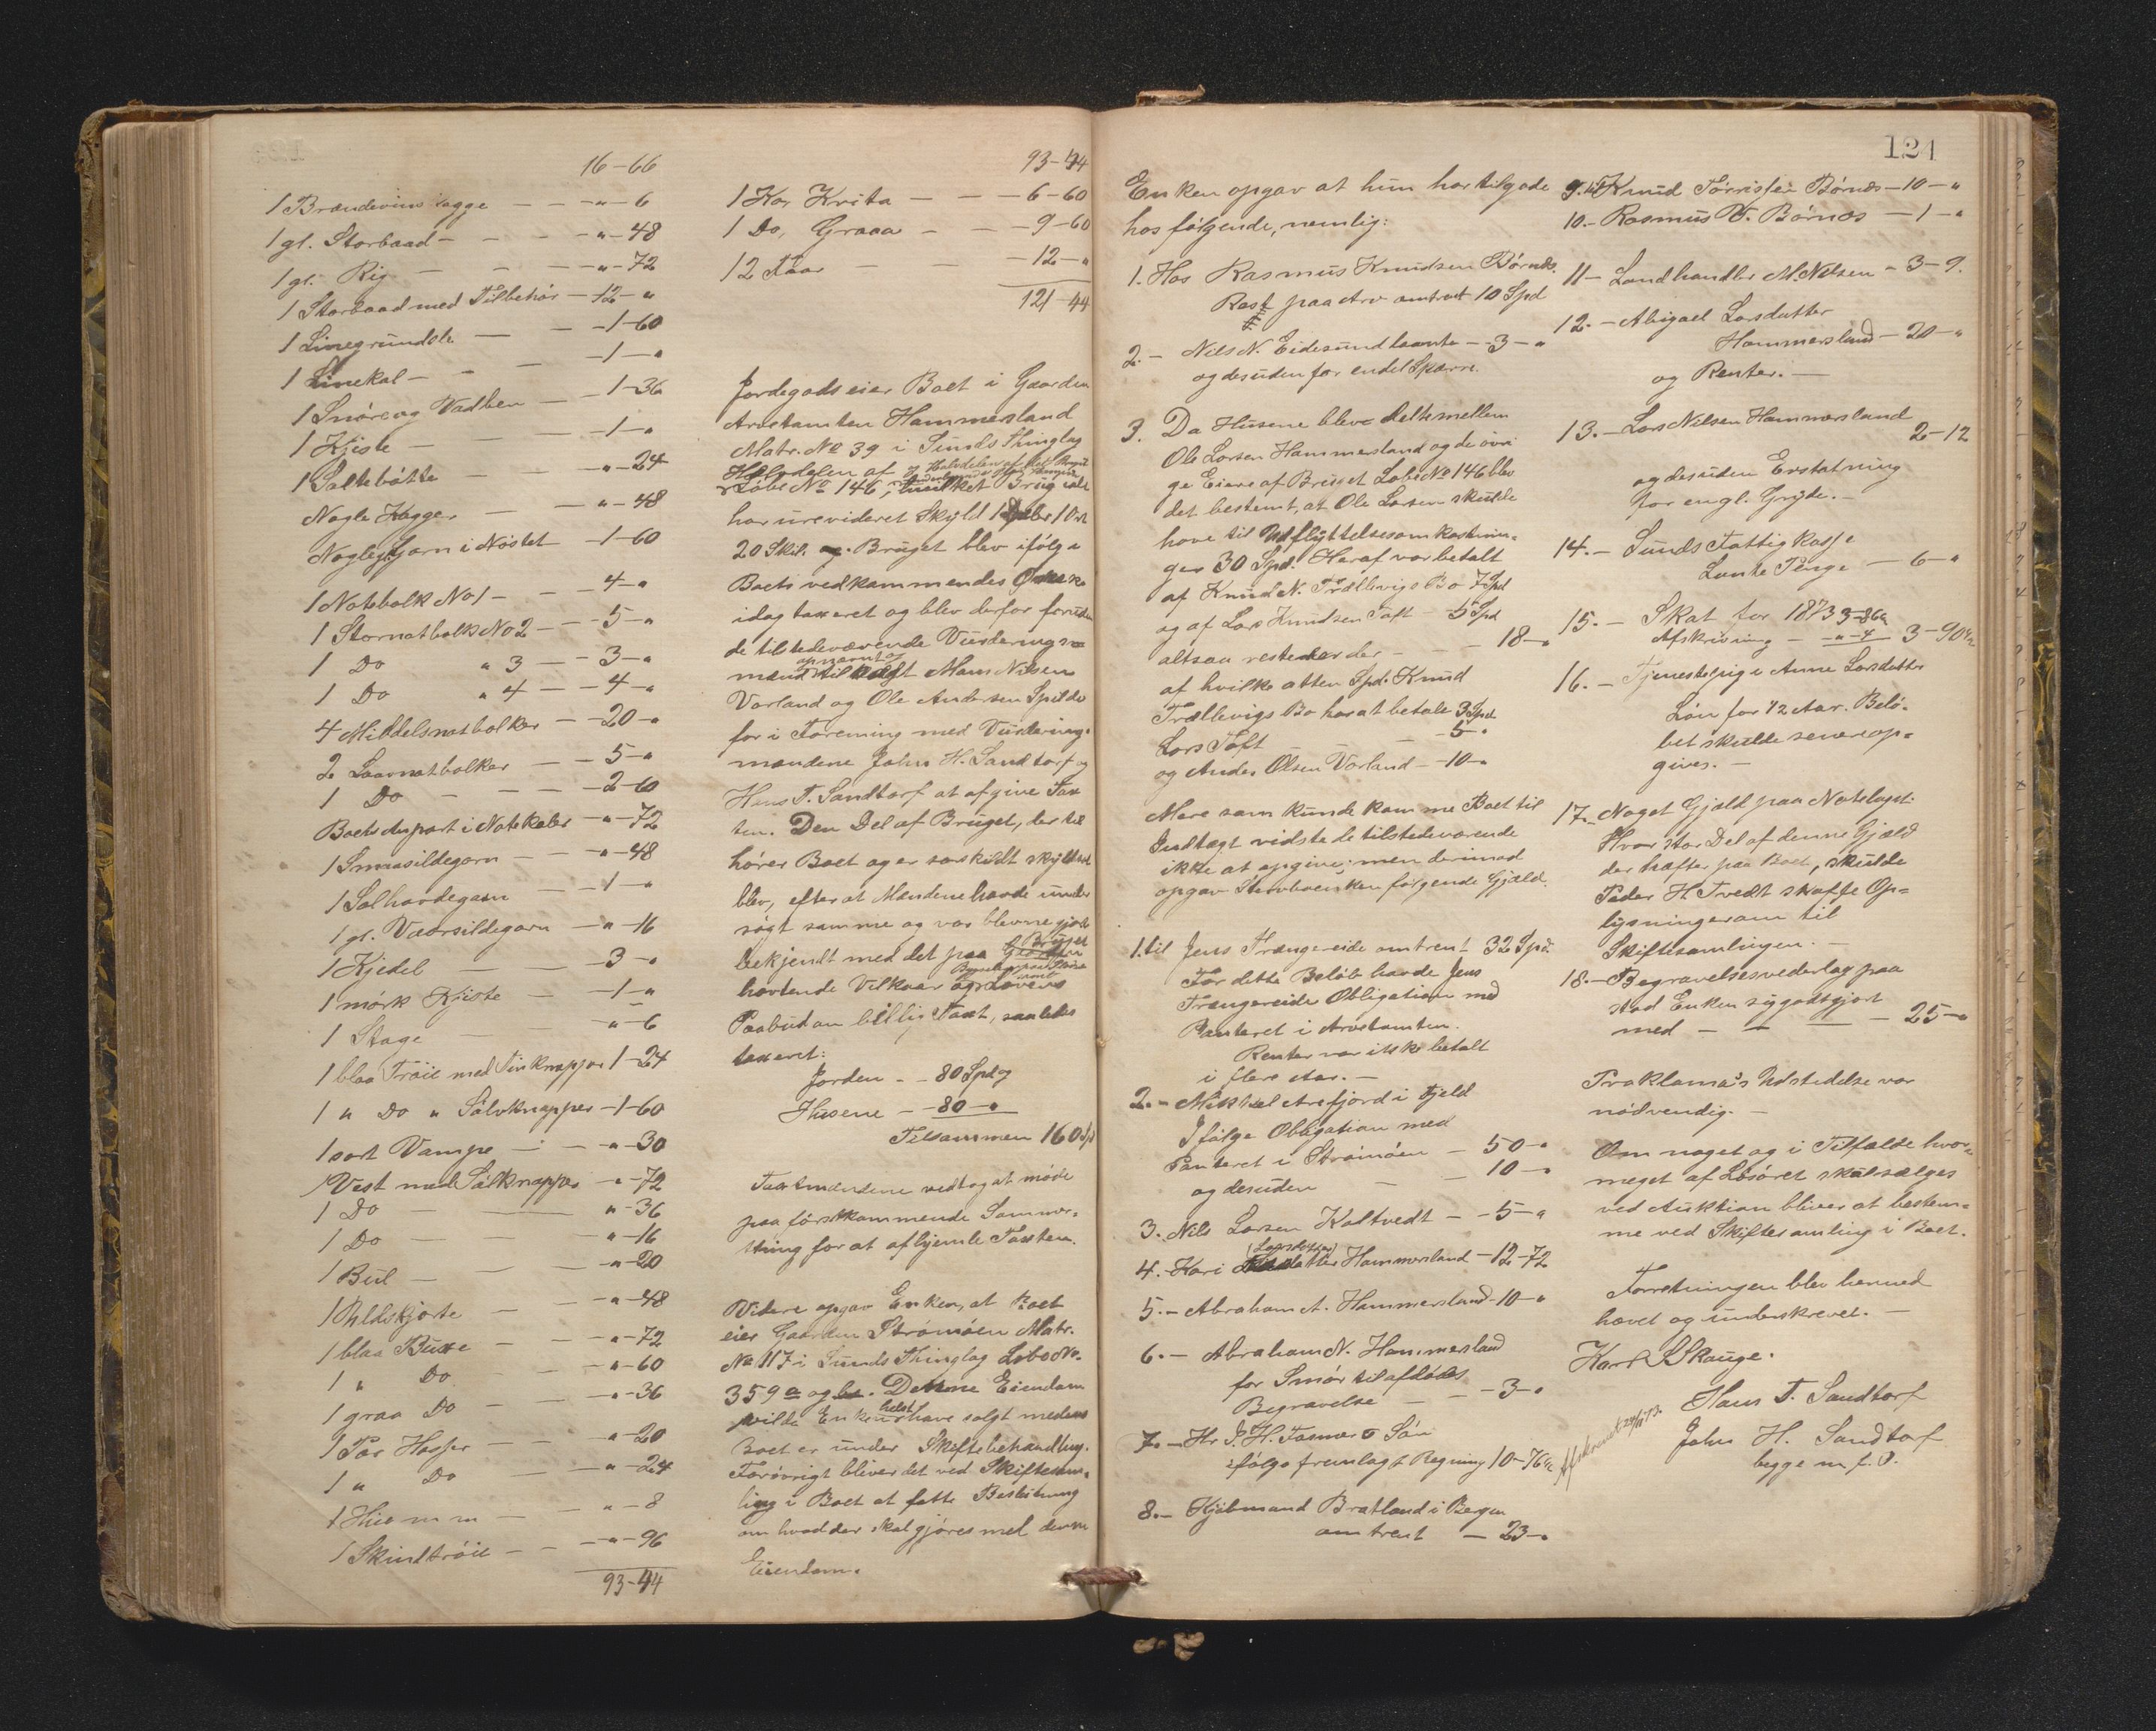 16-66
1 Brændevins kagge - - -"-6
1 gl. Storbaad - - - -"-48
1 gl. Rig - - - -"-72
1 Storbaad med Tilbehør - 12-"
1 Linegrundsle - - -1-60
1 Linekal - - - -1-"
1 Snøre og Vadben - 1-36
1 Kjiste - - - -1-"
1 Saltebøtte - - "-24
Nogle Kagger - - "-48
Nogle Garn i Nøstet -1-60
1 Notebolk No 1 - - -4-"
1 Stornotbolk No 2 - -5-"
1 Do " 3 - -3-"
1 Do " 4 - -4-"
4 Middelsnotbolker - -20-"
2 Laavnotbolker - -5-"
1 Do - - - -2-60
Boets Anpart i Notekaler -"-72
1 Smaasildegarn - -"-48
1 Salhavdegarn - -1-"
1 gl. Vaarsildegarn -"-16
1 Kjedel - - -3-"
1 mørk Kjiste - -1-"
1 Stage - - "-6
1 blaa Trøie med Tinknapper 1-24
1 " Do " Sølvknapper -1-60
1 sort Vampe - - -"-30
1 Vest med Sølvknapper -"-72
1 Do - - "-36
1 Do - - "-16
1 Bul - - -"-20
1 Uldskjorte - - "-48
1 blaa Buxe - - "-72
1 " Do - - "-60
1 graa Do - - "-36
1 Par Hosser - - "-20
1 " Do - - "-24
1 Hue m m - - "-8
1 Skindtrøie - - -"-96
93-44
93-44
1 Kor Kvita - - -6-60
1 Do, Graaa - - -9-60
12 Faar - - -12-"
121-44
Jordegods eier Boet i Gaarden
Arestamten Hammersland
Matr. No 39 i Sunds Thinglag
Halvdelen af
Løbe No 146, hvilket Brug ialt
har urevideret Skyld 1 Daler 1 Ort
20 Skil. Bruget blev ifølge
Boets vedkommendes Ønske
idag taxeret og blev derfor foruden
de tilstedeværende Vurderings-
opnævnt og
mænd tilkaldt Mons Nilsen
Vorland og Ole Andersen Spilde
for i Forening med Vurderings-
mændene John H. Sandtorf og
Hans T. Sandtorf at afgive Tax
ten. Den Del af Bruget, der til
hører Boet og er særskildt skyldsat
blev, efter at Mændene havde under
søgt samme og var blevne gjort
Bruget
bekjendt med det paa
heftende Vilkaar og Lovens
Paabud om billig Taxt, saaledes
taxeret:
Jorden - - 80 Spd
Husene - - 80-"
Tilsammen 160 Spd
Taxtmændene vedtog at møde
paa førstkommende Sommer-
thing for at afhjemle Taxten.
Videre opgav Enken, at Boet
eier Gaarden Strømøen Matr.
No 117 i Sunds Thinglag Løbe No.
359 a og b. Denne Eiendom
helst
vilde Enken have solgt medens
Boet er under Skiftebehandling.
Forøvrigt bliver det ved Skiftesam-
ling i Boet at fatte Beslutning
om hvad der skal gjøres med denne
Eiendom.
121
Enken opgav at hun har tilgode
hos følgende, nemlig:
1. Hos Rasmus Knudsen Børnæs
Rest paa Arv omtrent 10 Spd
2. - Nils N. Eidesund laante - 3-"
og desuden for endel Sparre.
3. Da Husene bleve delte mellem
Ole Larsen Hammersland og de øvri
ge Eiere af Bruget Løbe No 146 blev
det bestemt, at Ole Larsen skulde
have til Udflyttelsesomkostnin-
ger 30 Spd. Heraf var betalt
af Knud N. Trællevigs Bo 7 Spd
og af Lars Knudsen Toft - 5 Spd
altsaa resterer der - - - 18-"
af hvilke atten Spd. Knud
Trællevigs Bo har at betale 3 Spd
Lars Toft - 5-"
og Anders Olsen Vorland - -10-"
Mere som kunde komme Boet til
Indtægt vidste de tilstedeværende
ikke at opgive; men derimod
opgav Stervboenken følgende Gjæld.
1. til Jens Trængereide omtrent 32 Spd.
For dette Beløb havde Jens
Trængereide Obligation med
Panteret i Arestamten.
Renter var ikke betalt
i flere Aar. -
2. - Mikkel Arefjord i Fjeld
Ifølge Obligation med
Panteret i Strømøen - 50-"
og desuden - - 10-"
3. Nils Larsen Kaltvedt - -5-"
(Larsdatter)
4. - Kari Hammersland -12-72
5. - Abraham A. Hammersland -10-"
6. - Abraham N. Hammersland
for Smør til afdødes
Begravelse - -3-"
7. - Hr J. H. Fasmer & Søn
ifølge fremlagt Regning 10-76
8. - Kjøbmand Bratland i Bergen
omtrent - 23-"
9. til Knud Børnæs -10-"
10. - Rasmus T. Børnæs -1-"
11 - Landhandler M. Nilsen - 3-9.
12. - Abigael Larsdatter
Hammersland - 20-"
og Renter. -
13. - Lars Nilsen Hammersland
2-12
og desuden Erstatning
for engl. Gryde. -
14. - Sunds Fattigkasse
Laante Penge - 6-"
15. - Skat for 1873 3-86
Afskrivning - "-4 3-90
16. - Tjenestepige Anne Larsdatter
Løn for 1/2 Aar. Belø-
bet skulde senere op-
gives. -
17. - Noget Gjæld paa Notelaget:
Hvor stor Del af denne Gjæld
der hafter paa Boet, skulde
Peder H. Tvedt skaffe Op-
lysninger om til
Skiftesamlingen. -
18. - Begravelsesvederlag paa
stod Enken sig godtgjort
med - - - - 25-"
Proklama's Udstedelse var
nødvendig. -
Om noget og i Tilfælde hvor-
meget af Løsøret skal sælges
ved Auktion bliver at bestem-
me ved Skiftesamling i Boet.
Forretningen blev hermed
hævet og underskrevet. -
Karl S Skauge.
Hans T. Sandtorf
John H. Sandtorf
begge m. f. P.